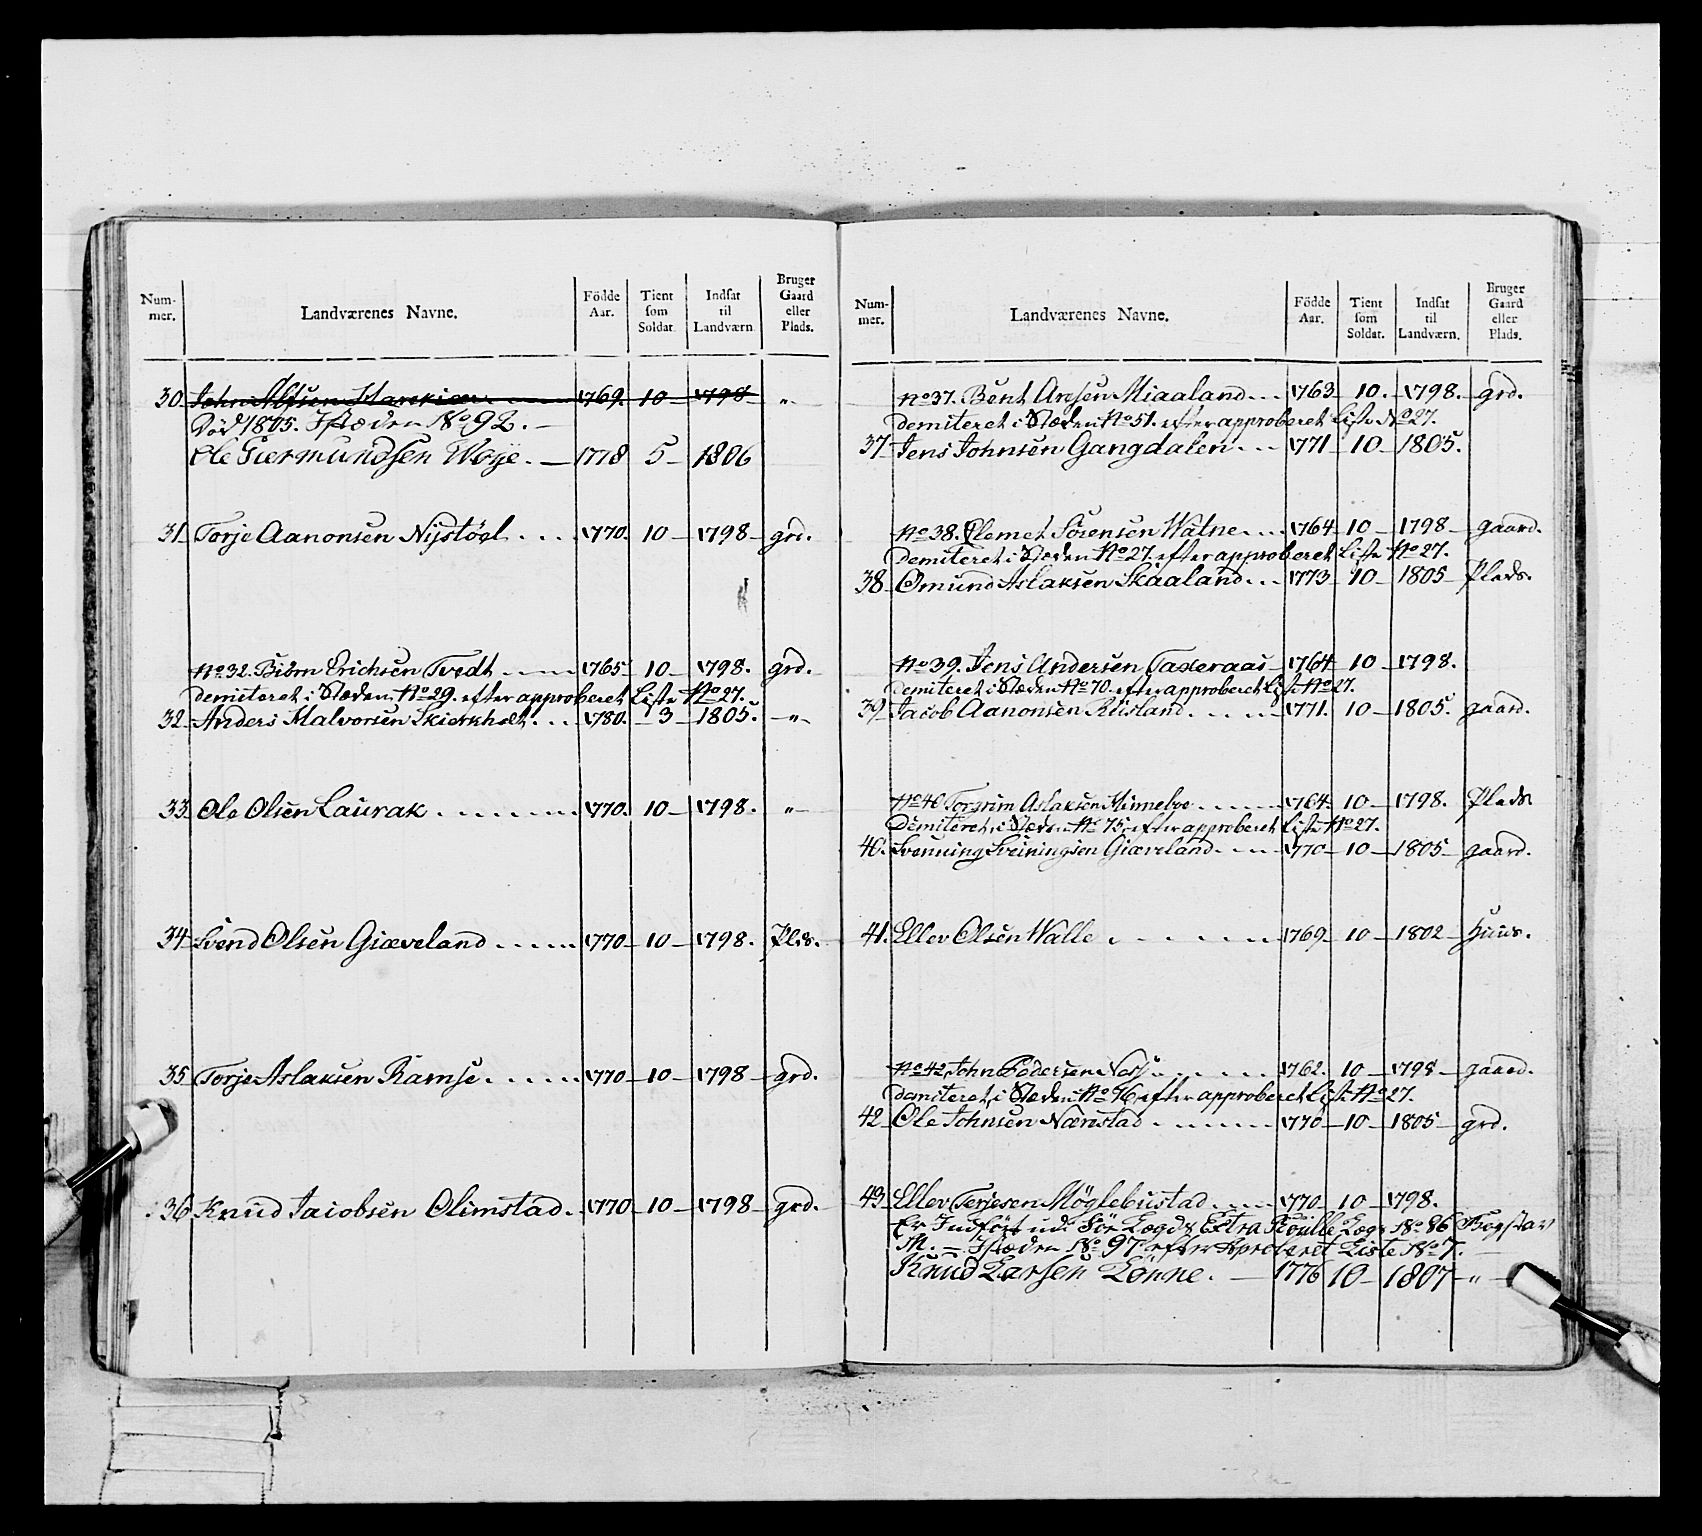 Num-
mer.
Landværenes Navne.
Födde
Aar.
Tient
som
Soldat.
Indsat
til
Landværn.
Bruger
Gaard
eller
Plads.
30. John Alfsen 1769. 10 1798 "
Död 1805. I Stæden No 92.
Ole Giermundsen Woje. 1778 5 1806
31. Torje Aanonsen Nijstöel 1770. 10 1798 grd.
No 32. Biörn Erichsen Tvedt 1765 10 1798. grd.
demiteret i Stæden No 29. efter approberet Liste No 27.
32. Anders Halvorsen Skierkholt 1780. 3 1805. "
33. Ole Olsen Laurak 1770. 10 1798. "
34. Svend Olsen Giæveland 1770 10 1798. Plds.
35. Torje Aslaksen Ramse 1770 10 1798 grd.
36. Knud Jacobsen Olimstad. 1770 10 1798 grd.
Num-
mer.
Landværenes Navne.
Födde
Aar.
Tient
som
Soldat.
Indsat
til
Landværn.
Bruger
Gaard
eller
Plads.
No 37. Bent Aresen Miaaland 1763 10. 1798. grd.
demiteret i Stæden No 51. efter approberet Liste No 27.
37. Jens Johnsen Gangdalen 1771 10 1805.
No 38. Clemet Sörensen Watne 1764 10 1798 gaard.
demiteret i Stæden No 27. efter approberet Liste No 27.
38. Omund Aslaksen Skaaland 1773 10 1805 Plads.
No 39. Jens Andersen Taxeraas 1764 10 1798.
demiteret i Stæden No 70. efter approberet List No 27.
39. Jacob Aanonsen Riisland 1771. 10 1805. gaard.
No 40 Torgrim Aslaksen Hinnebye 1764. 10 1798. Plads
Demiteret i Stæden No 75. efter approberet Liste No 27.
40. Svenning Sveiningsen Giæveland 1770 10 1805 gaard.
41. Ellev Olsen Walle 1769 10 1802 Huus.
No 42 John Pedersen 1762. 10 1798 gaard.
demiteret i Stæden No 76 efter approberet List No 27.
42 Ole Johnsen Nærestad 1770 10 1805 grd.
43. Ellev Terjesen Möglebustad 1770 10 1798.
Er Indfört udi Sör Lægds Extra Roulle Læg No 86
I Stæden No 97 efter Aproberet Liste No 7.
Knud Larsen Lönne. 1776 10 1807 "